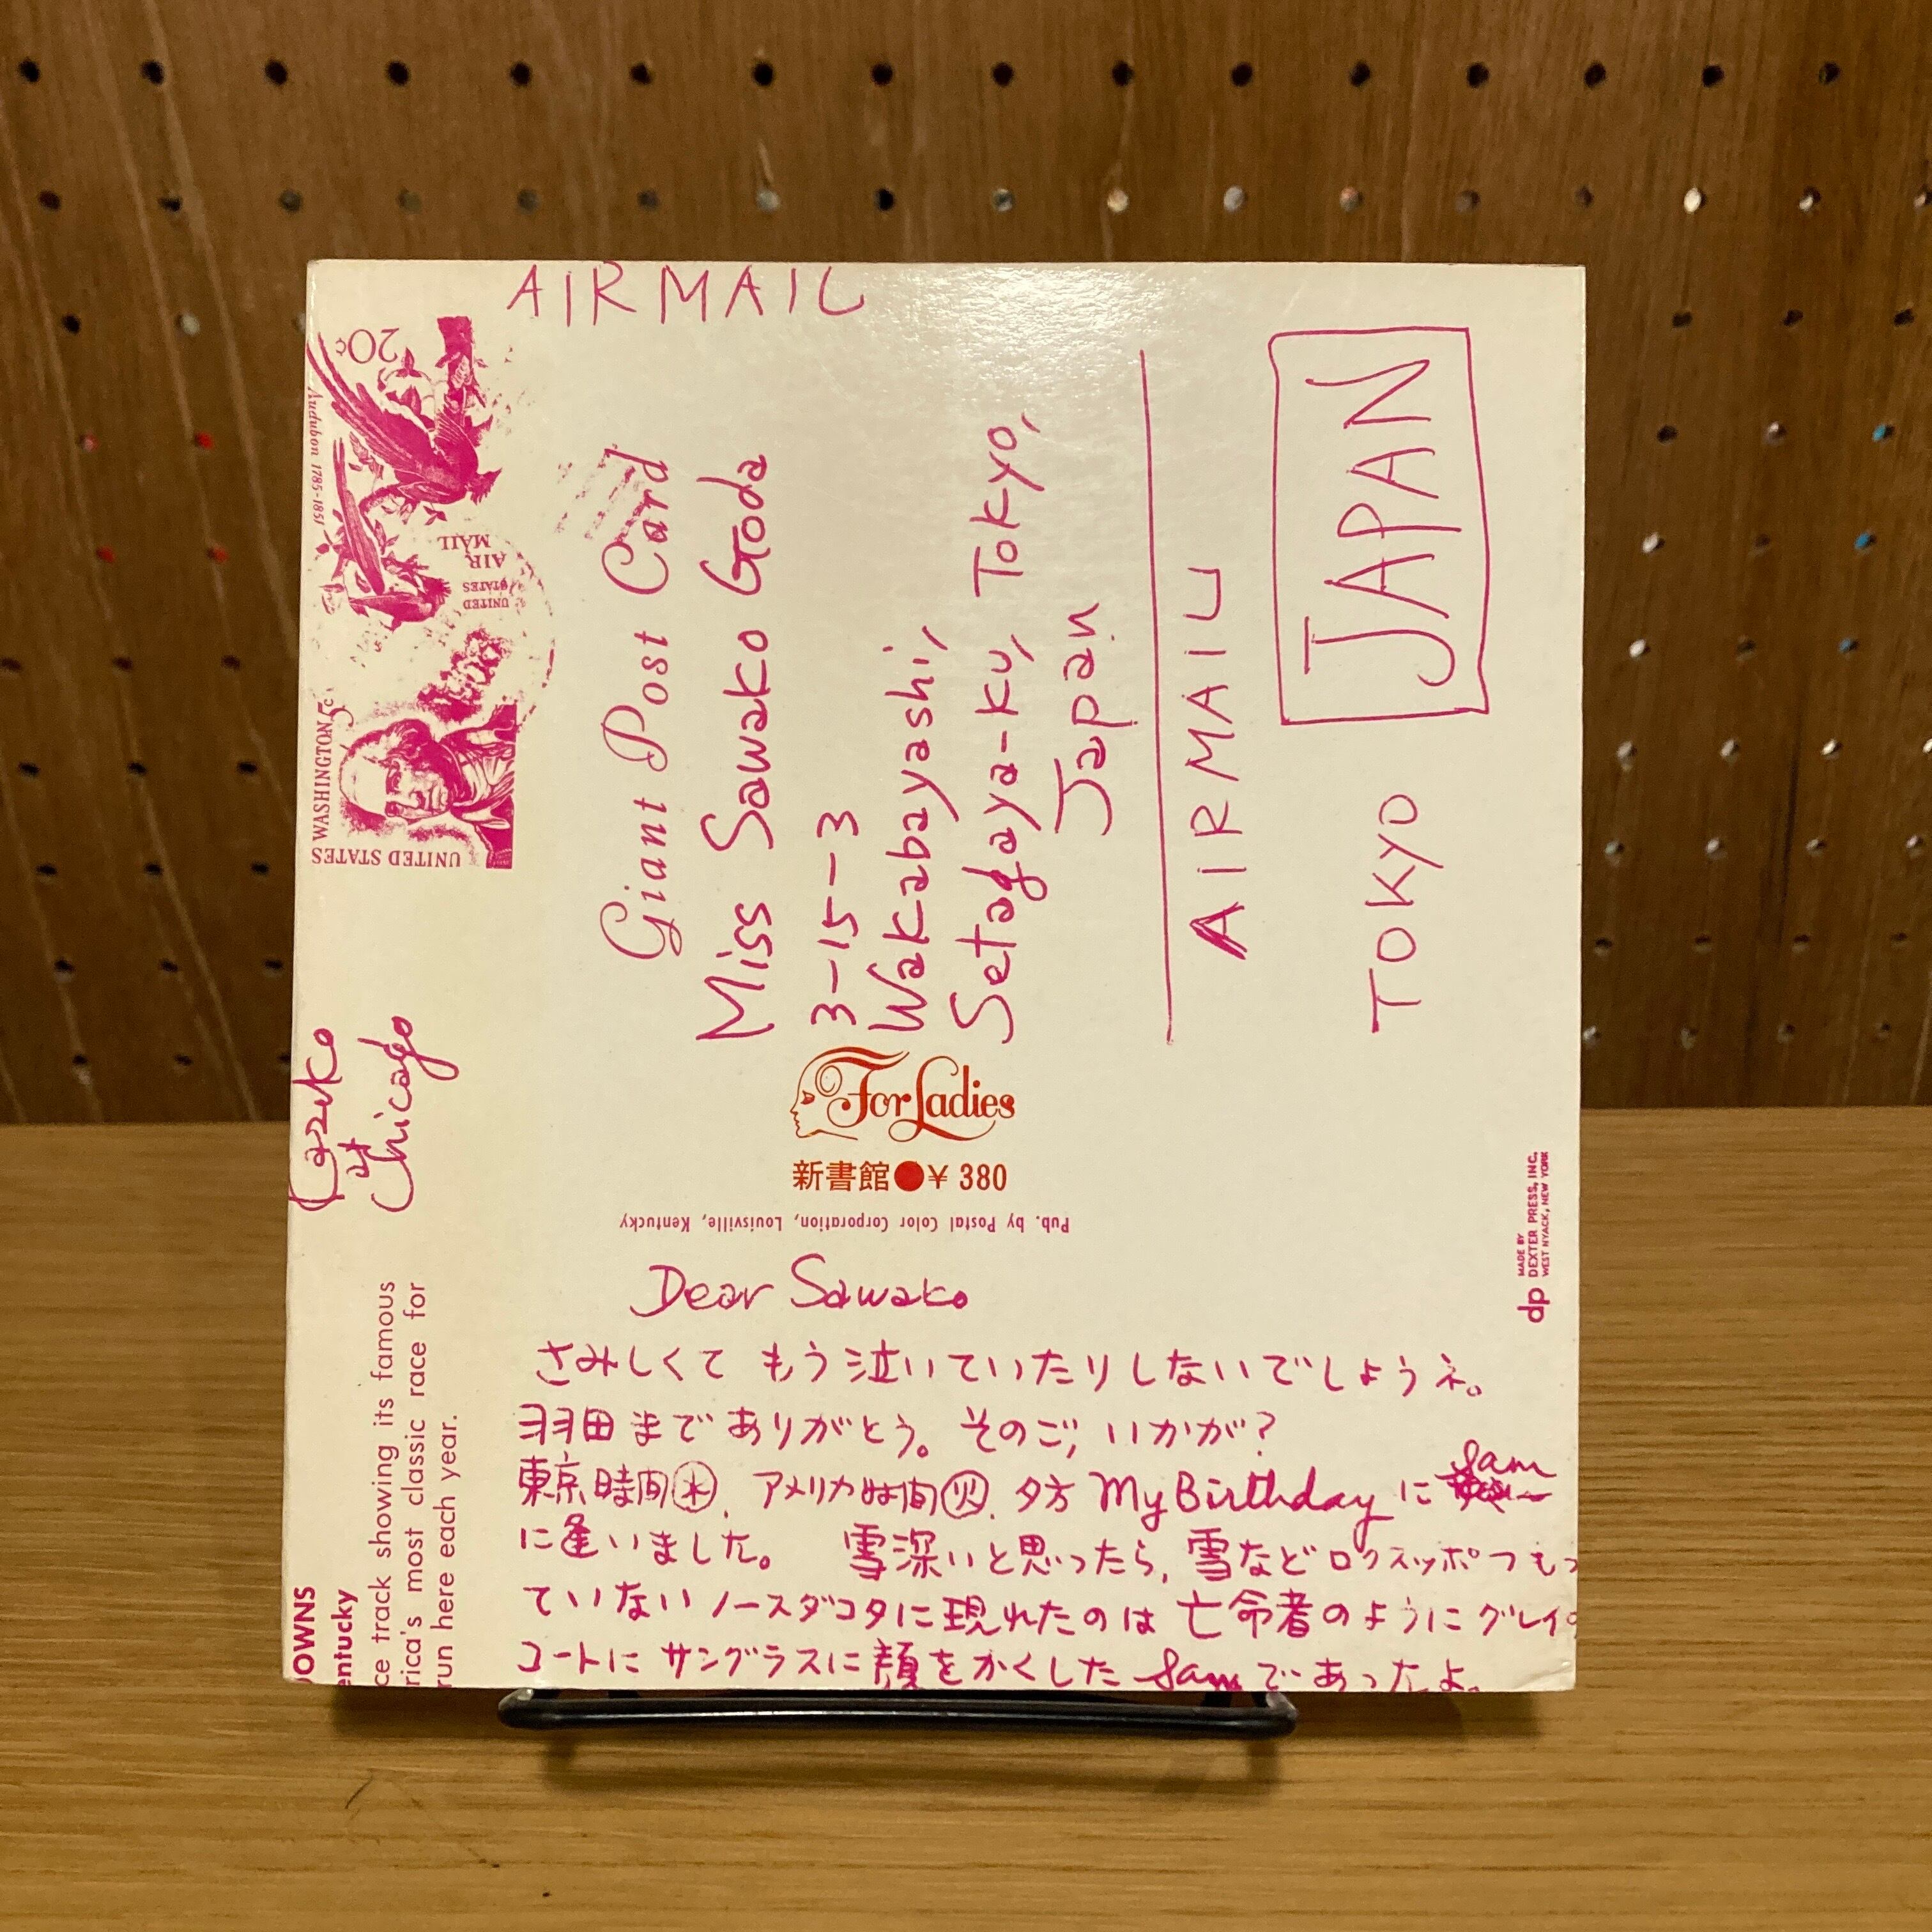 AIRMAIL
20¢
Audubon 1785-1851
UNITED STATES
AIR MAIL
WASHINGTON 5¢
UNITED STATES
Giant Post Card
Miss Sawako Goda
3-15-3
Wakabayashi,
Setagaya-ku, Tokyo,
Japan
AIRMAIL
TOKYO JAPAN
Kazuko
at
Chicago
For Ladies
新書館●¥380
Pub. by Postal Color Corporation, Louisville, Kentucky
MADE BY
dp DEXTER PRESS, INC.
WEST NYACK, NEW YORK
OWNS
entucky
ce track showing its famous
rica's most classic race for
run here each year.
Dear Sawako
さみしくて もう泣いていたりしないでしょうネ。
羽田までありがとう。そのご, いかが?
東京時間㊌, アメリカ時間㊋. 夕方 My Birthday に Sam
に逢いました。 雪深いと思ったら, 雪などロクスッポつもっ
ていないノースダコタに現れたのは亡命者のようにグレイの
コートにサングラスに顔をかくした Sam であったよ。